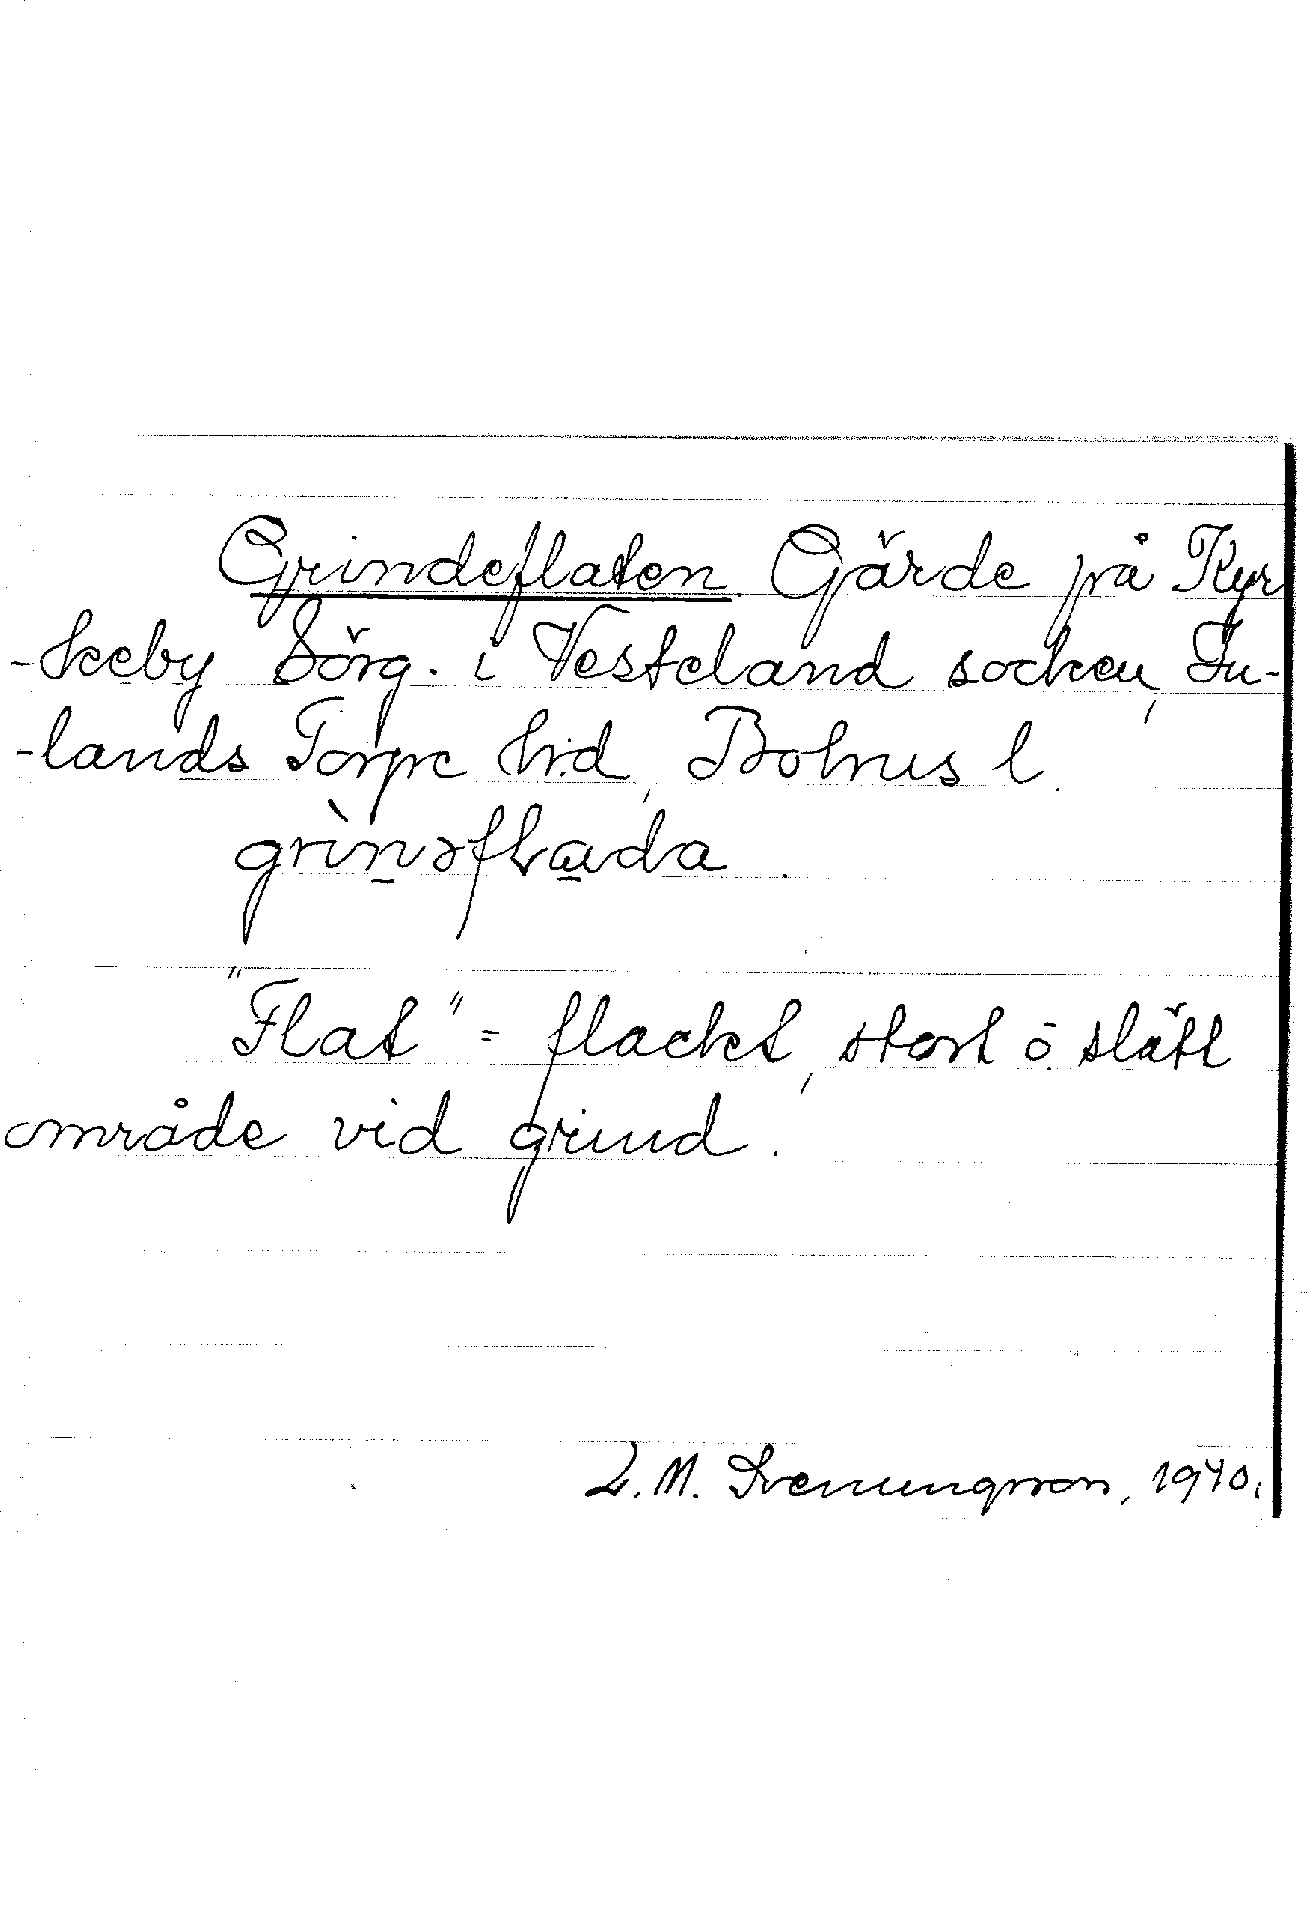 Grindeflaten. Gärde på Kyr
-keby Sörg. i Vesteland socken, In-
-lands Torpe hrd, Bohus l.
grìnəfɫada.
"Flat" = flackt, stort o. slätt
område vid grind.
L. M. Svenungsson, 1940.